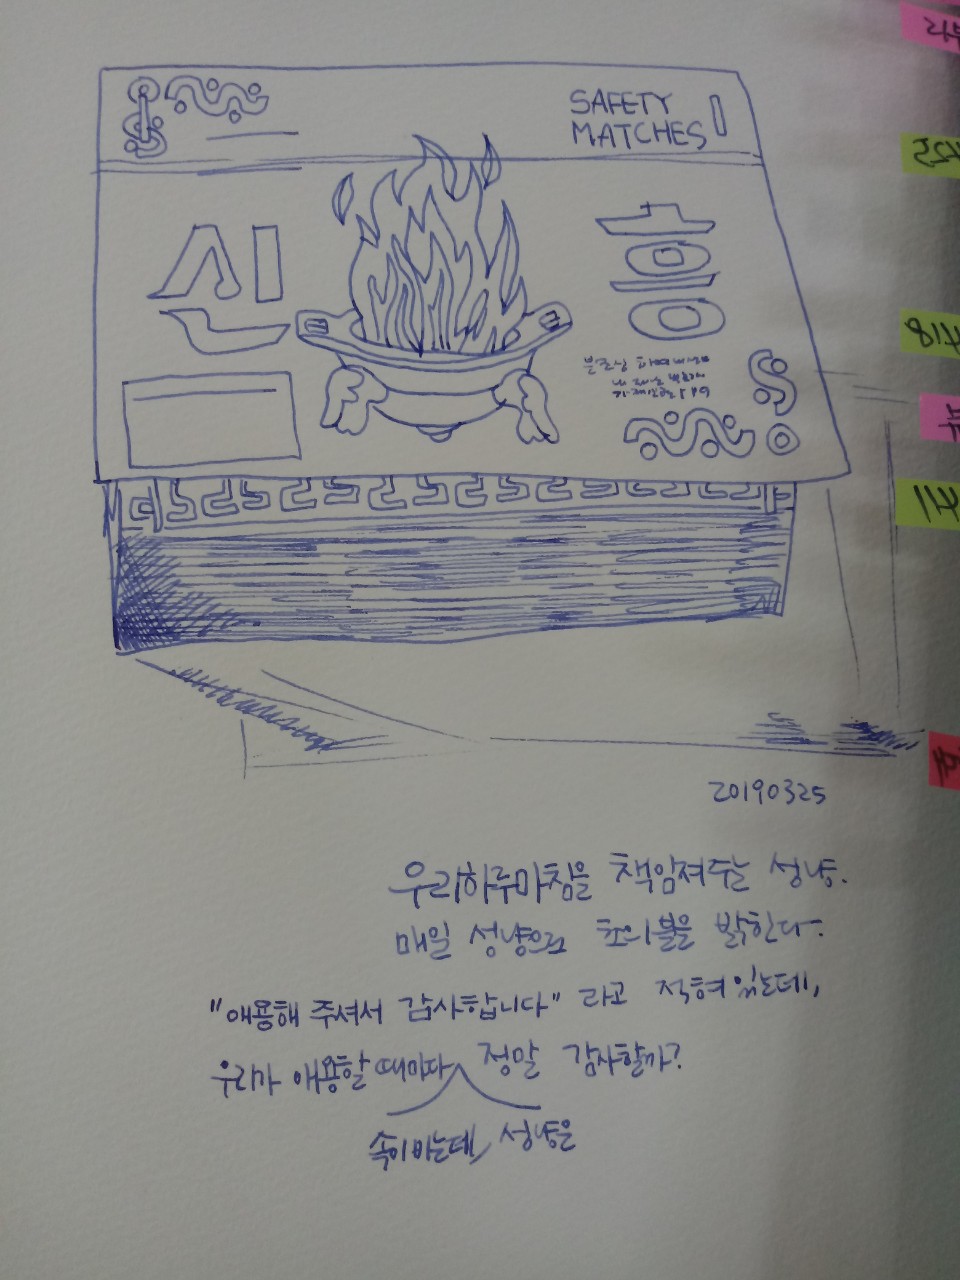 SAFETY
MATCHES
신 흥
불조심
20190325
우리하루마침을 책임져주는 성냥.
매일 성냥으로 초의불을 밝힌다.
"애용해 주셔서 감사합니다" 라고 적혀있는데,
우리가 애용할 때마다 정말 감사할까?
속이비는데, 성냥은